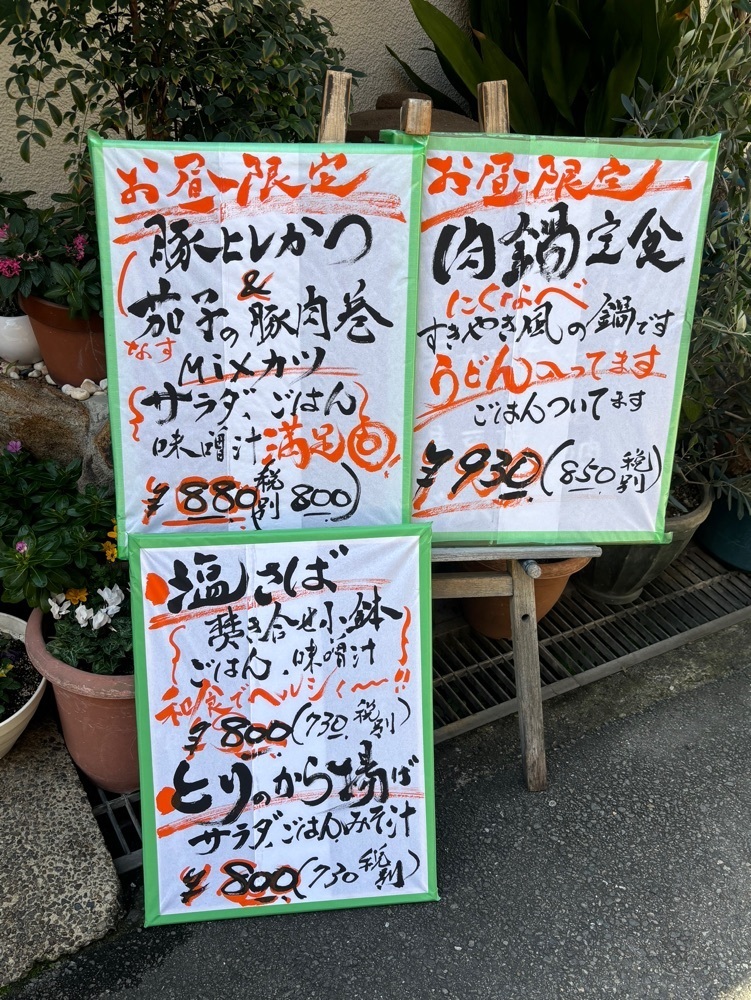 お昼限定
豚ヒレかつ
&
茄子の豚肉巻
なす
Mixカツ
サラダ、ごはん
味噌汁 満足
¥880(税別 800)
お昼限定
肉鍋定食
にくなべ
すきやき風の鍋です
うどん入ってます
ごはんついてます
¥930(850 税別)
塩さば
焚き合せ小鉢
ごはん、味噌汁
和食でヘルシー〜!!
¥800(730 税別)
とりのから揚げ
サラダ、ごはん、みそ汁
¥800(730 税別)